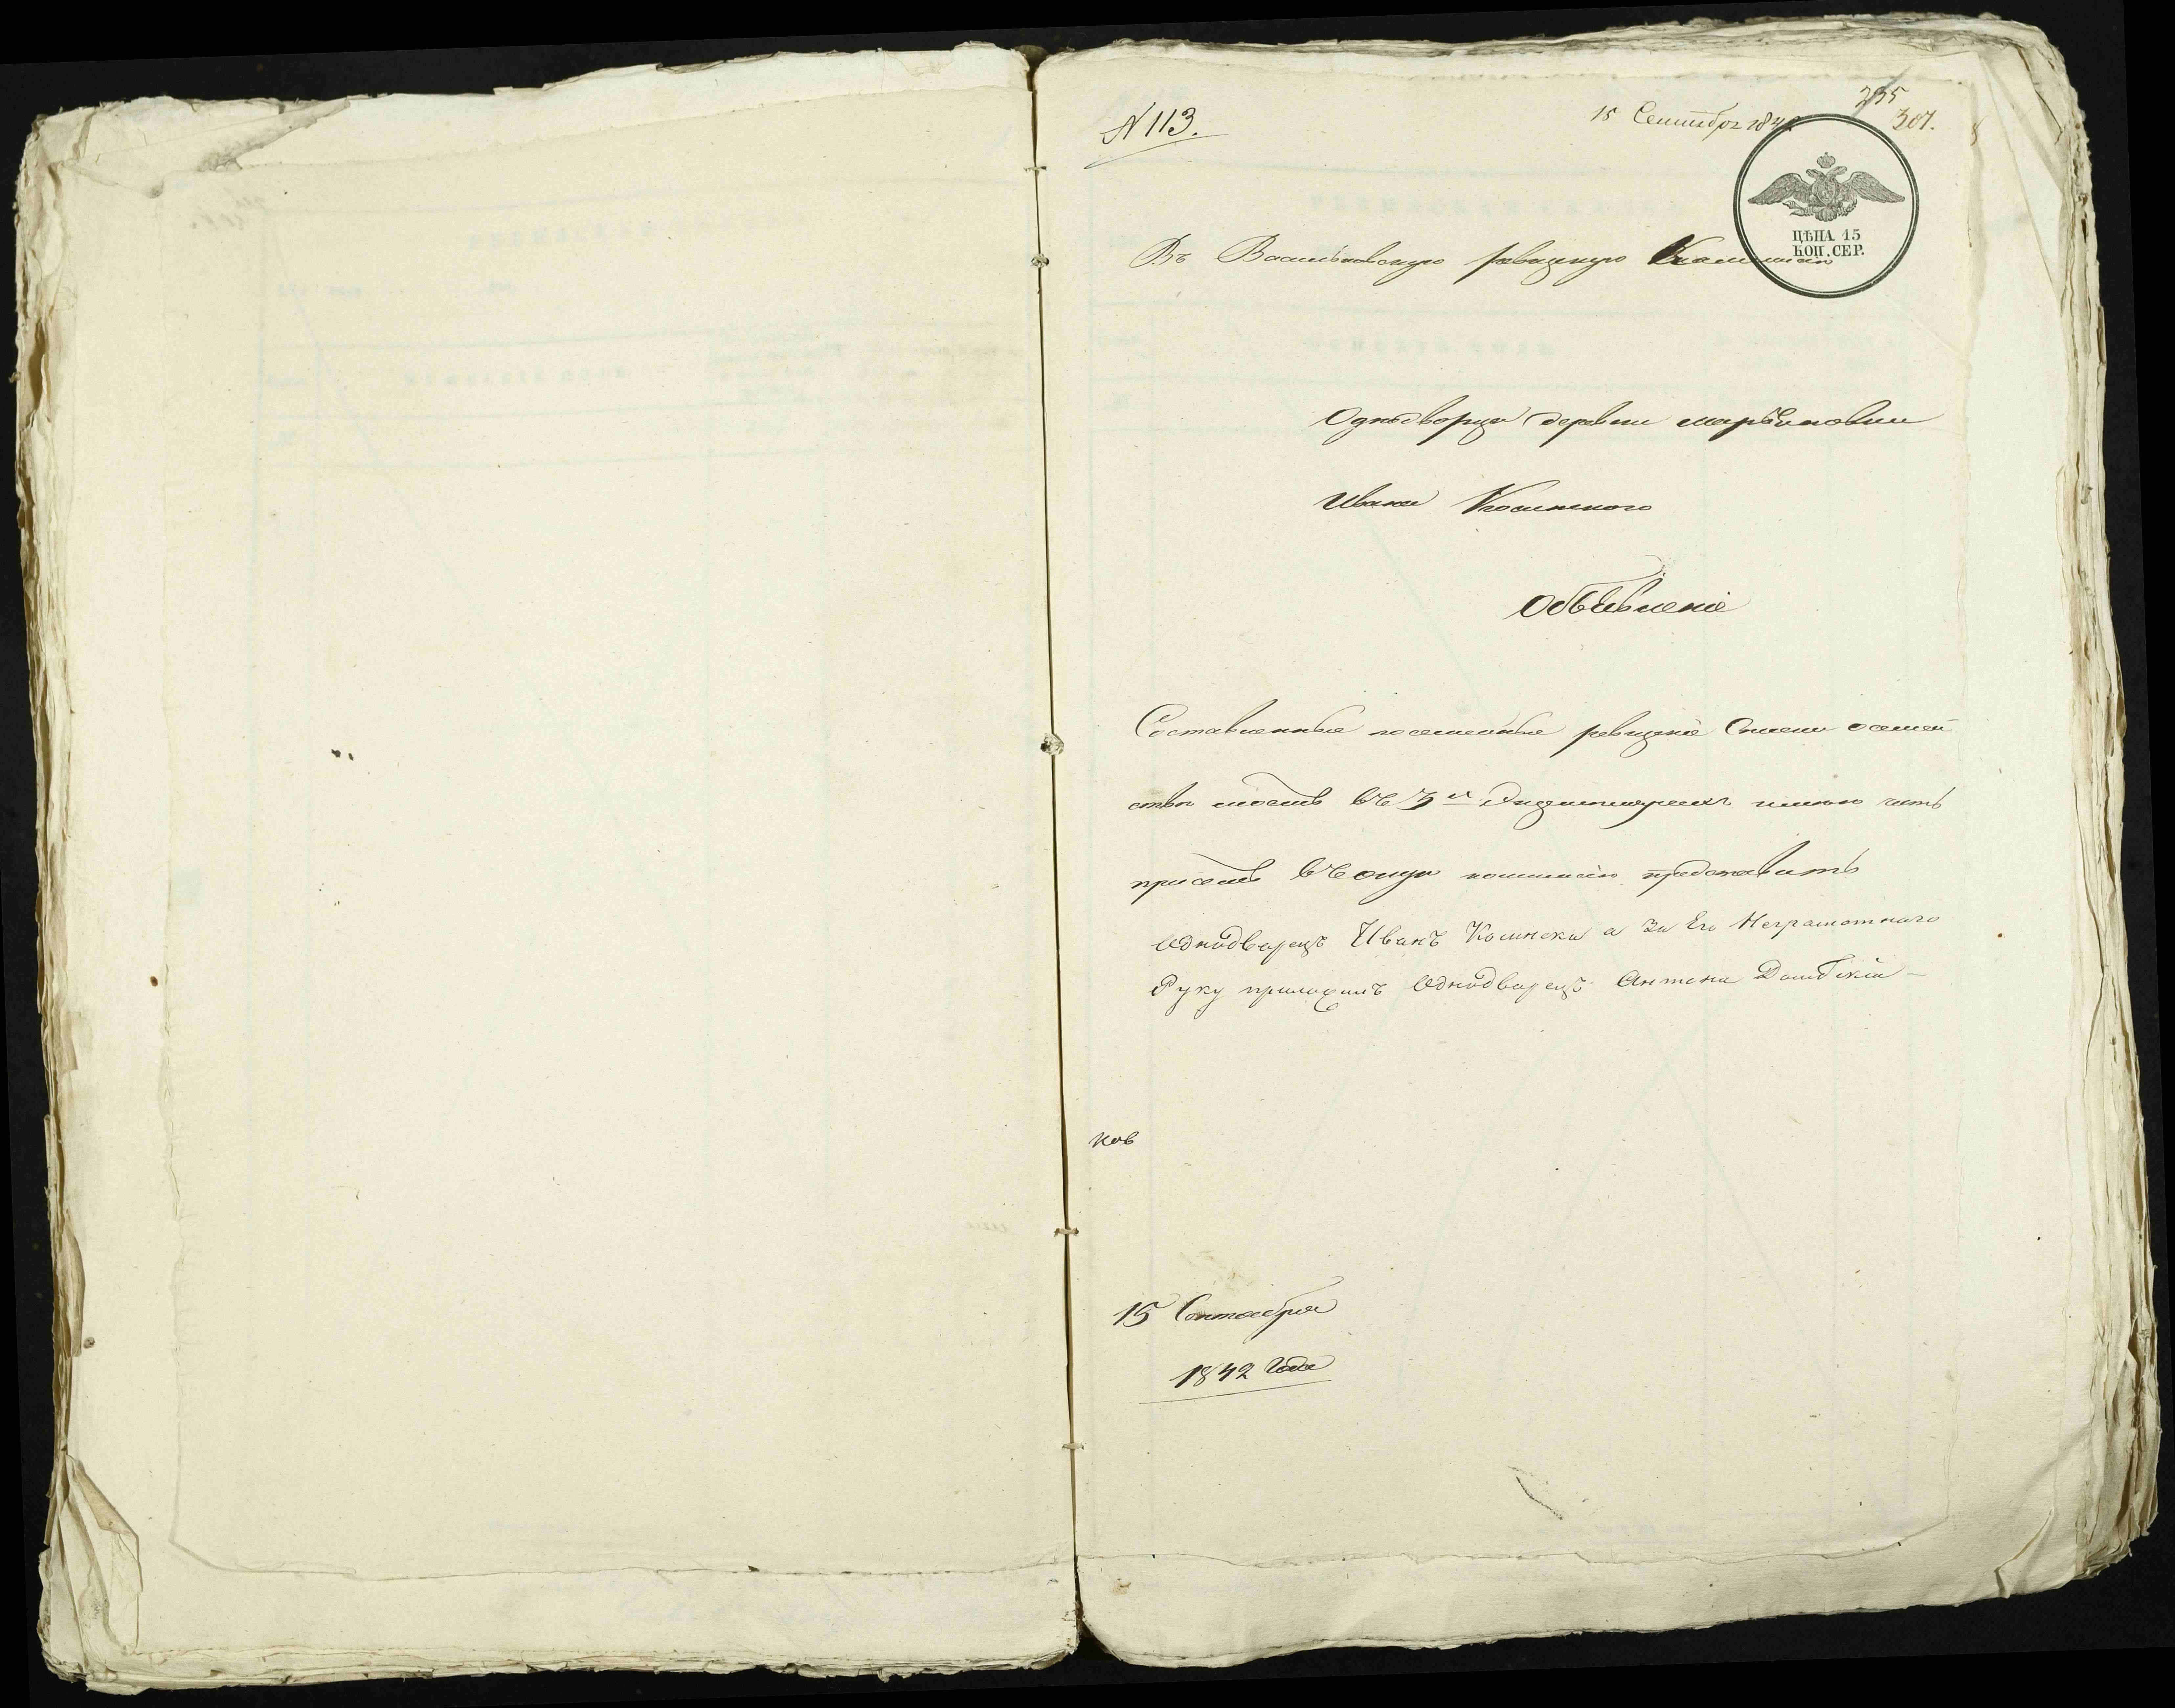 N 113.
15 Сентября 1842
235
307.
ЦѢНА 15
КОП. СЕР.
Въ Васильковскую ревизкую Коммисию
Однодворца деревни Марьяновки
Ивана Косинского
Объявленіе
Составленные посемейные ревизкіе Списки о семей
ства моемъ въ 3хъ Экземплярахъ имею честь
присемъ въ оную коммисію представить
Однодворецъ Иванъ Косински а За Его Неграмотнаго
Руку приложилъ Однодворецъ Антони Домбскій
ков
15 Сентября
1842 Года